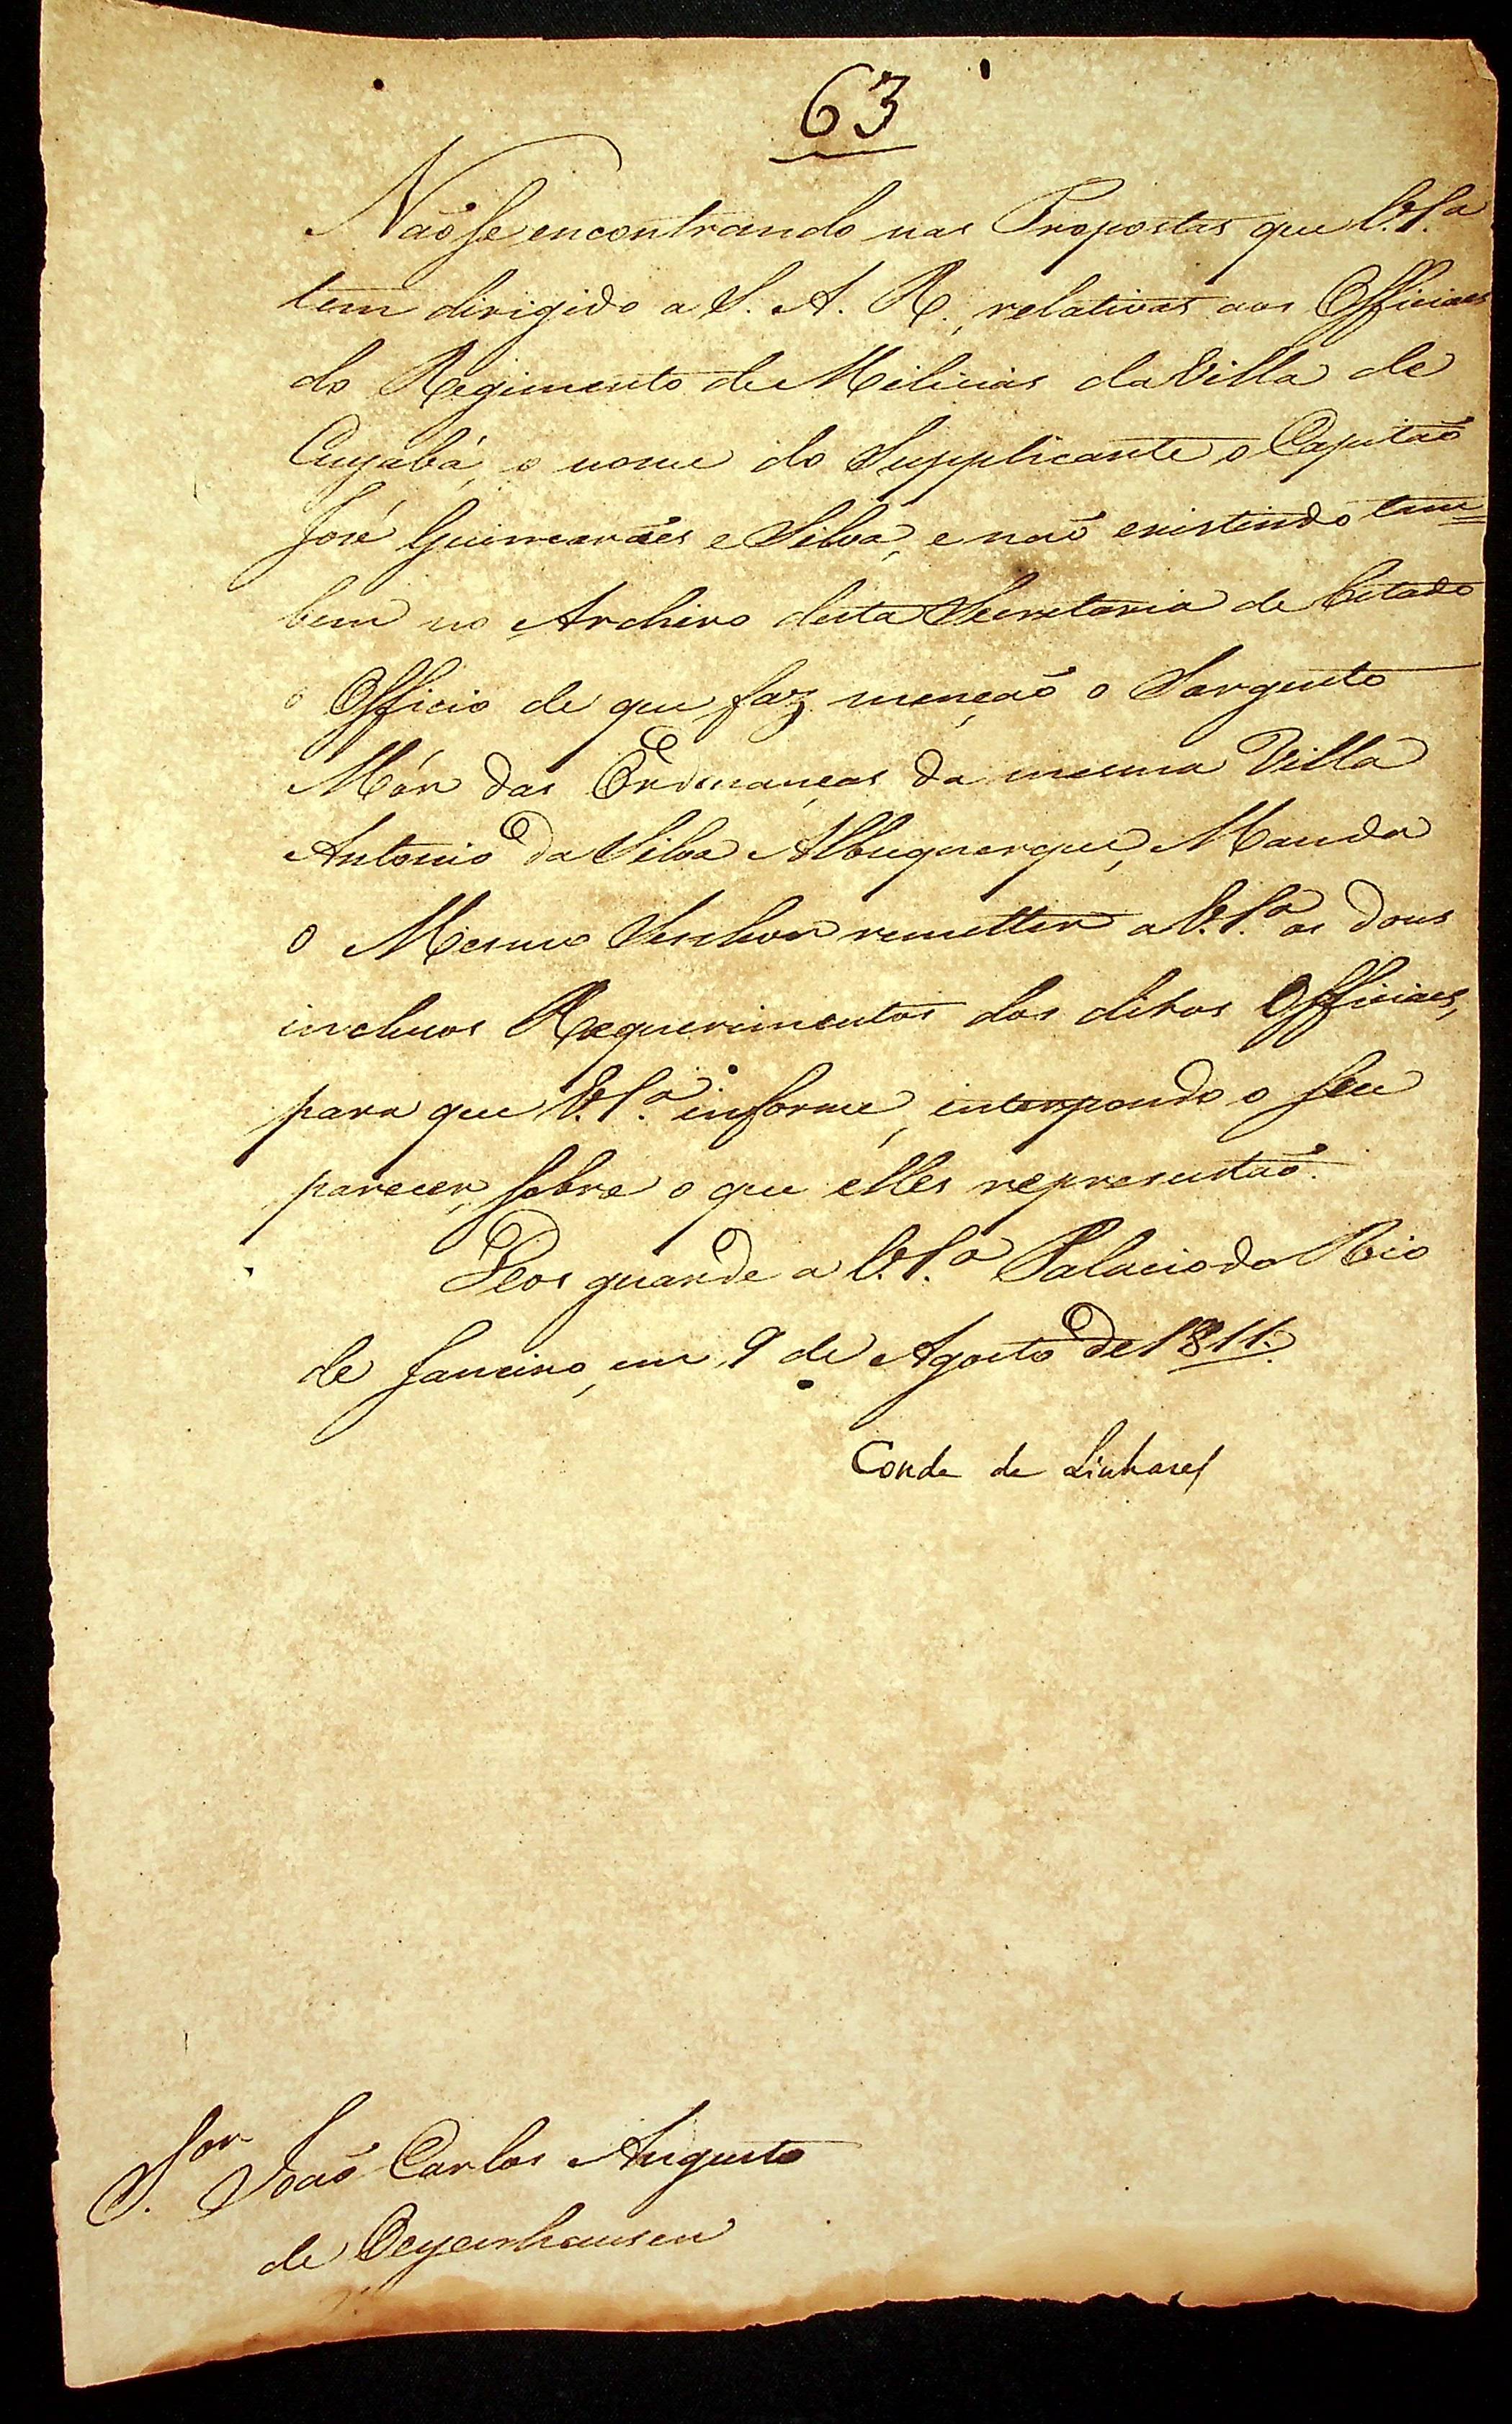 63
Não se encontrando nas Propostas que V. S.ª
tem dirigido a S. A. R., relativas aos Officiaes
do Regimento de Milicias da Villa de
Cuyabá, o nome do Supplicante o Capitaõ
José Guimarães e Silva, e naõ existindo tam=
bem no Archivo desta Secretaria de Estado
o Officio de que faz mençaõ o Sargento
Mór das Ordenanças da mesma Villa
Antonio da Silva Albuquerque, Manda
o Mesmo Senhor remetter a V. S.ª os dous
inclusos Requerimentos dos ditos Officiaes,
para que V. S.ª informe, interpondo o seu
parecer, sobre o que elles representaõ.
Deos guarde a V. S.ª Palacio do Rio
de Janeiro, em 9 de Agosto de 1811.
Conde de Linhares
S.or Joaõ Carlos Augusto
de Oeyenhausen